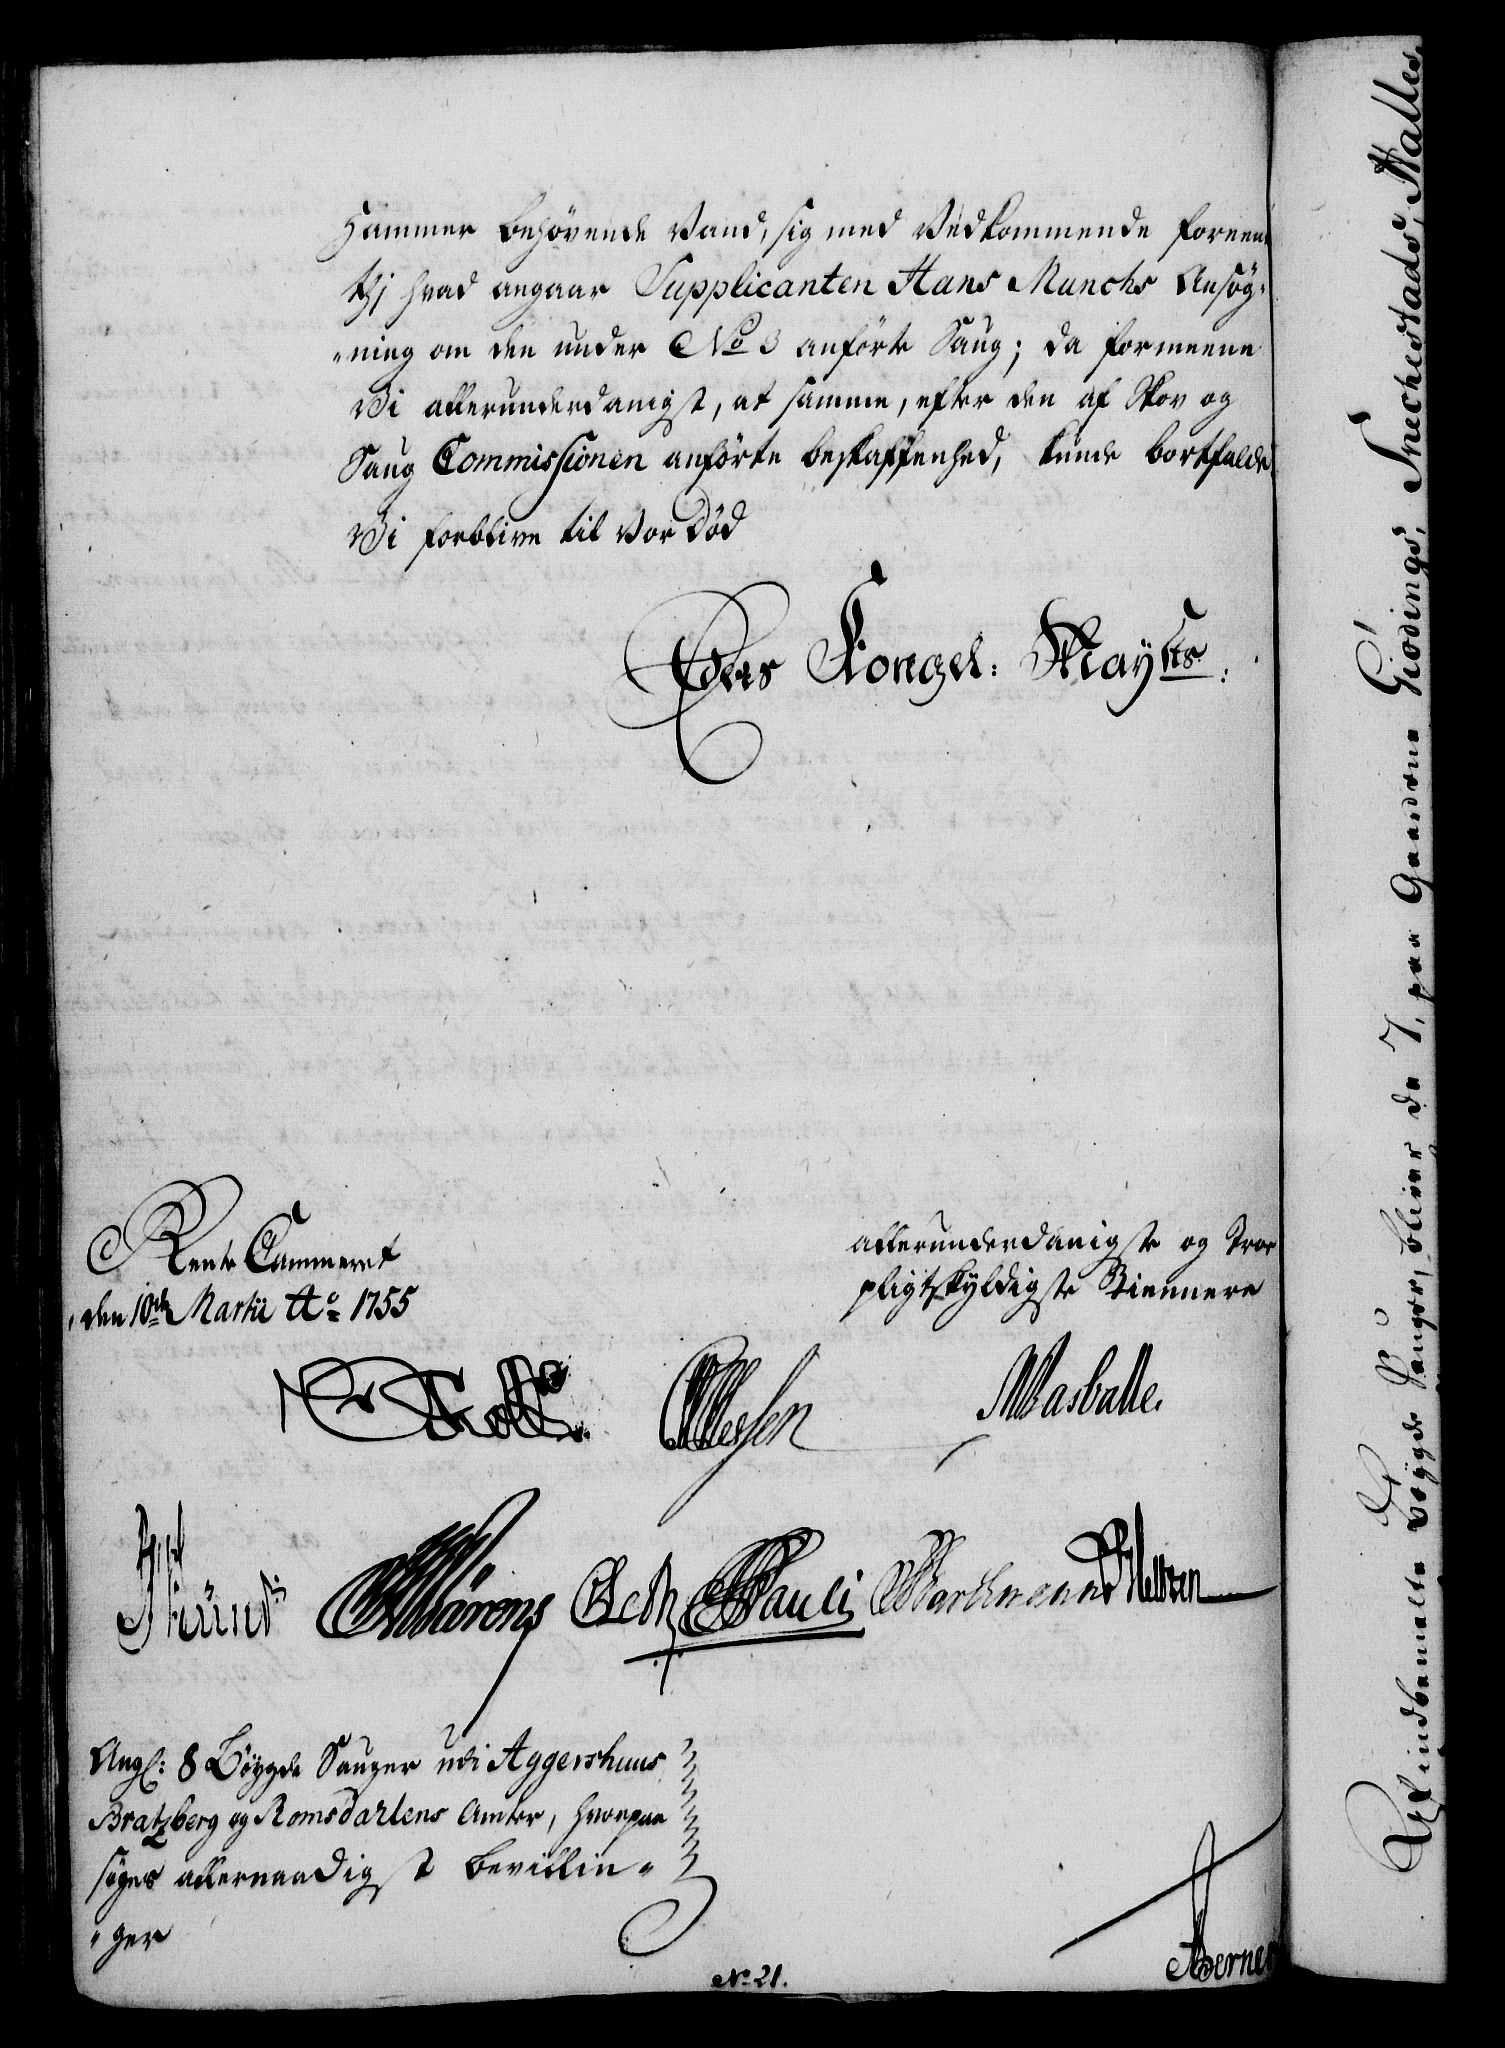 Hammer behövende Vand, sig med Vedkommende foreene
thj hvad angaar Supplicanten Hans Munchs Ansög-
-ning om den under No 3 anförte Saug; da formeene
Vi allerunderdanigst, at samme, efter den af Skov og
Saug Commissionen anförte beskaffenhed, kunde bortfalde
Vi forblive til vor död
Eders Kongel: Mayts:
Rente Cammeret
den 10de Martii Ao 1755
allerunderdanigste og Troe
pligtskyldigste Tiennere
Masballe.
Pauli
Bartmann
Angl: 8 Böygde Sauger udi Aggershuus
Bratzberg og Romsdarlens Amter, hvorpaa
söges allernaadigst bevillin-
-ger
No 21.
Berner
Afsindbemelte böygde Sauger, bliver da 7, paa Gaardene Giödings, Snechestads, Nalles